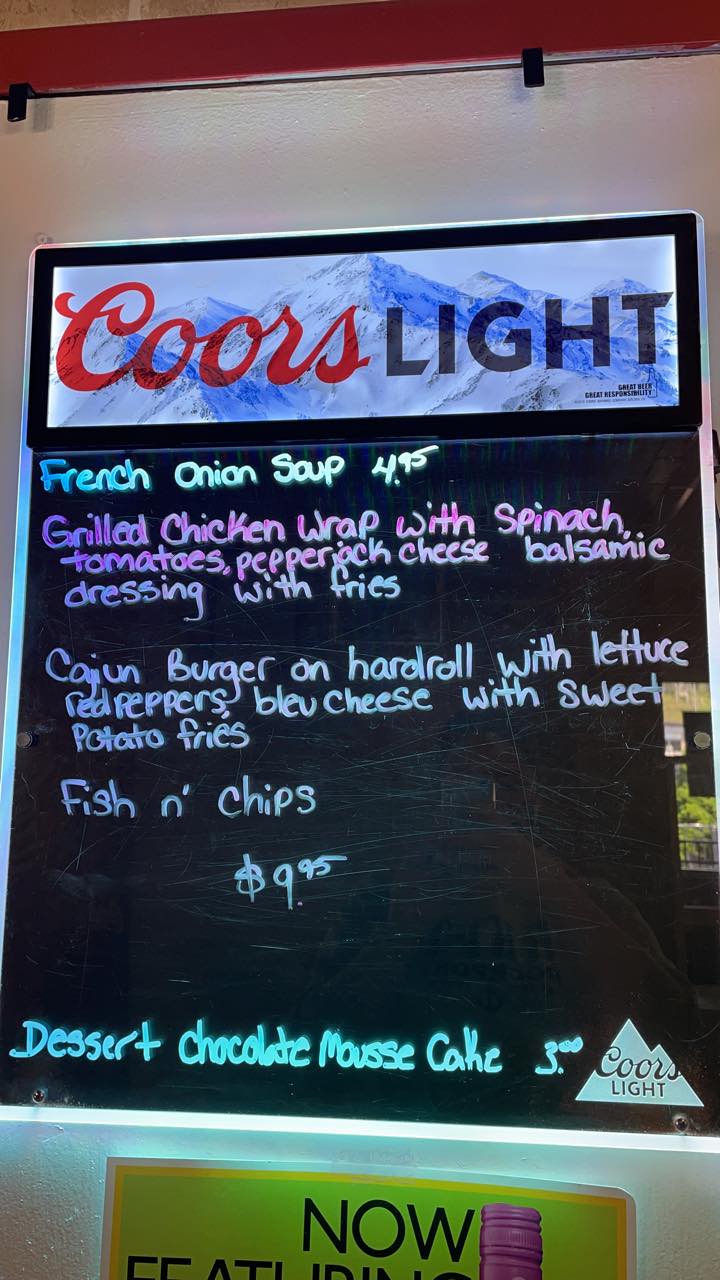 Coors LIGHT
GREAT BEER
GREAT RESPONSIBILITY
French Onion Soup 4.95
Grilled Chicken Wrap with Spinach,
tomatoes, pepperjack cheese balsamic
dressing with fries
Cajun Burger on hardroll with lettuce
red peppers, bleu cheese with sweet
Potato fries
Fish n' Chips
$9.95
Dessert Chocolate Mousse Cake 3.00
Coors
LIGHT
NOW
FEATURING